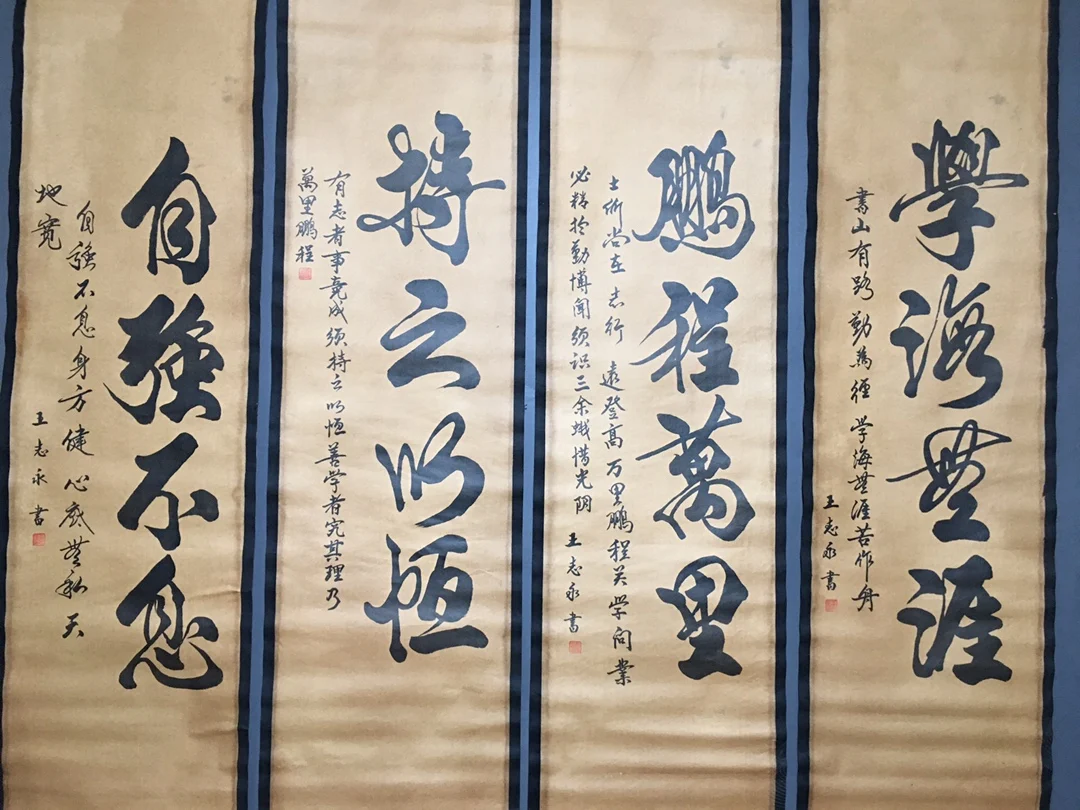 學海無涯
書山有路勤為徑学海無涯苦作舟
王志永書
鵬程萬里
士術尚在志行遠登高万里鵬程关学问業
必精於勤博闻须识三余蛾惜光阴
王志永書
持之以恒
有志者事竟成须持之以恒善学者究其理乃
萬里鵬程
自强不息
自强不息身方健心底無私天
地寬
王志永書